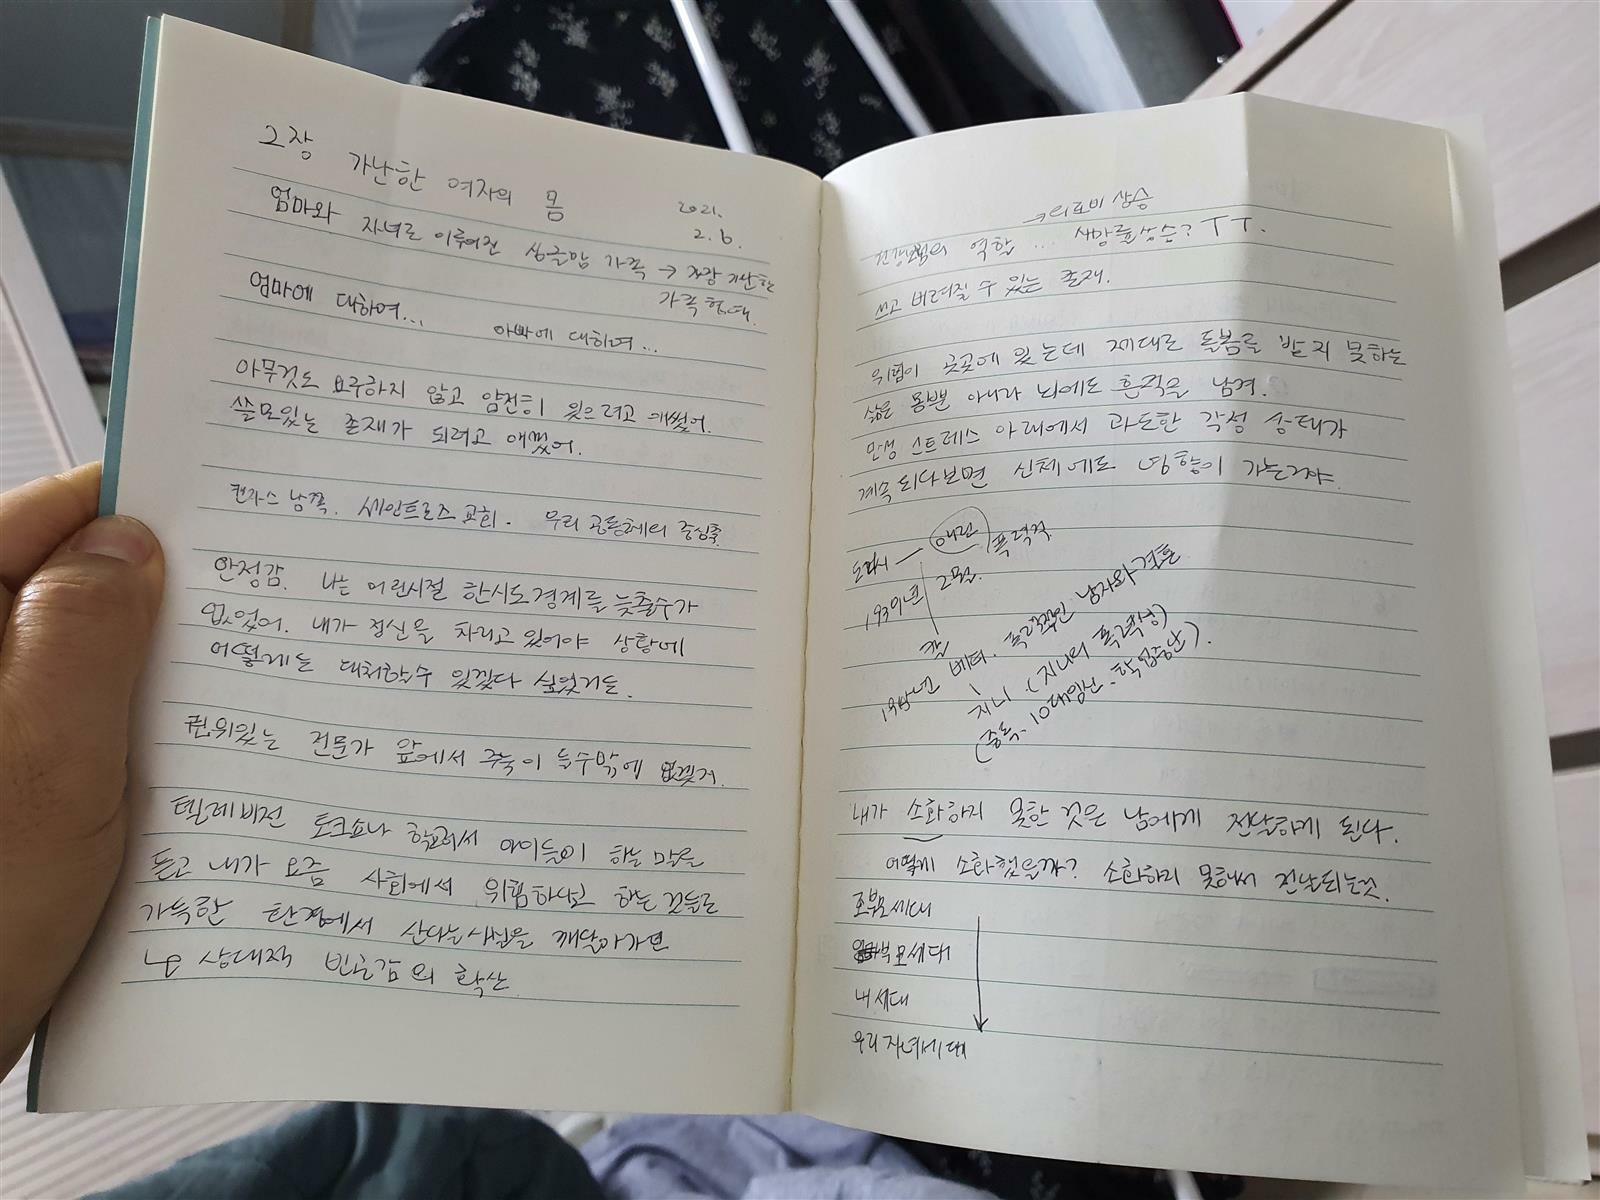 2장 가난한 여자의 몸
2021.
2. 6.
엄마와 자녀로 이루어진 싱글맘 가족 → 가장 가난한
가족형태.
엄마에 대하여... 아빠에 대하여...
아무것도 요구하지 않고 얌전히 있으려고 애썼어.
쓸모있는 존재가 되려고 애썼어.
캔자스 남쪽. 세인트로즈 교회. 우리 공동체의 중심축.
안정감. 나는 어린시절 한시도 경계를 늦출수가
없었어. 내가 정신을 차리고 있어야 상황에
어떻게든 대처할수 있겠다 싶었거든.
권위있는 전문가 앞에서 주눅이 들수밖에 없었거.
텔레비전 토크쇼나 학교에서 아이들이 하는 말을
듣고 내가 요즘 사회에서 위험하다고 하는 것들로
가득한 환경에서 산다는 사실을 깨달아가며
↳ 상대적 빈곤감의 확산
→ 의료비 상승
건강보험의 역할 ... 사망률상승? ㅜㅜ.
쓰고 버려질 수 있는 존재.
위험이 곳곳에 있는데 제대로 돌봄을 받지 못하는
삶은 몸뿐 아니라 뇌에도 흔적을 남겨.
만성 스트레스 아래에서 과도한 각성 상태가
계속되다보면 신체에도 영향이 가는거야.
도러시 — 애런 폭력적
1939년 2월.
1945년 베티. 폭력적인 남자와 결혼
지니. (지니의 폭력성)
(중독, 10대임신, 학업중단).
내가 소화하지 못한 것은 남에게 전달하게 된다.
어떻게 소화했을까? 소화하지 못해서 전달되는것.
조부모세대
부모세대
내 세대
우리 자녀세대